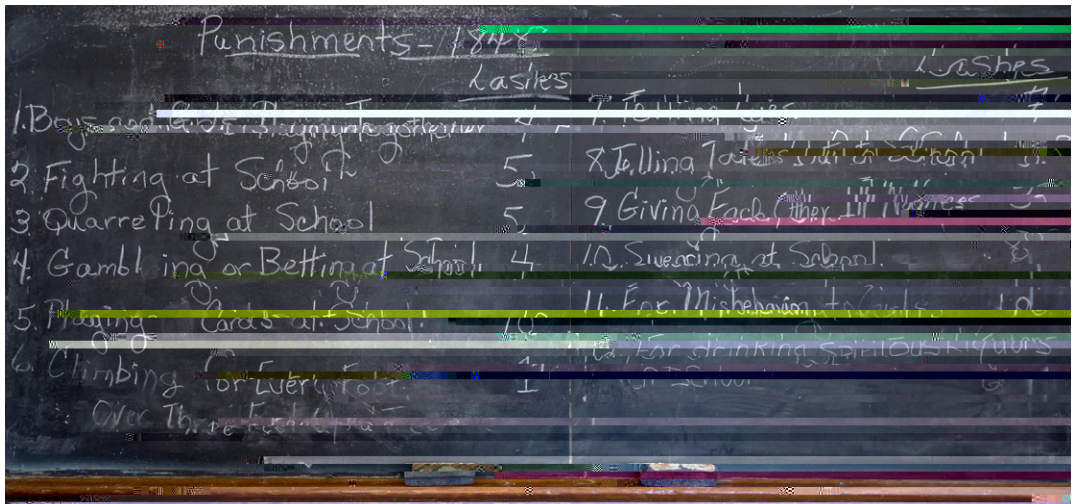 Punishments - 1848
Lashes
1. Boys and Girls Playing Together 4
2. Fighting at School 5
3. Quarreling at School 5
4. Gambling or Betting at School 4
5. Playing Cards at School. 10
6. Climbing for Every Foot 1
Over Three Feet
Lashes
7. Telling Lyes 7
8. Telling Tales Out of School
9. Giving Each Other Ill Names 3
10. Swearing at School. 8
11. For Misbehaving to Girls 10
12. For drinking Spirituous Liquors
at School